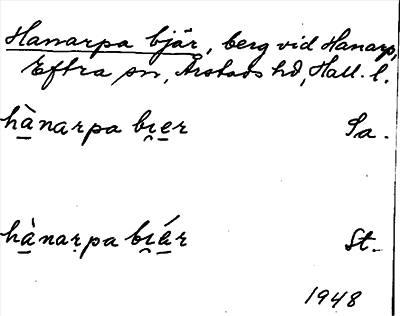 Hanarpa bjär, berg vid Hanarp,
Eftra sn, Årstads hd, Hall. l.
hànarpa bi̯er Sa.
hànaṛpa bi̯ér St.
1948